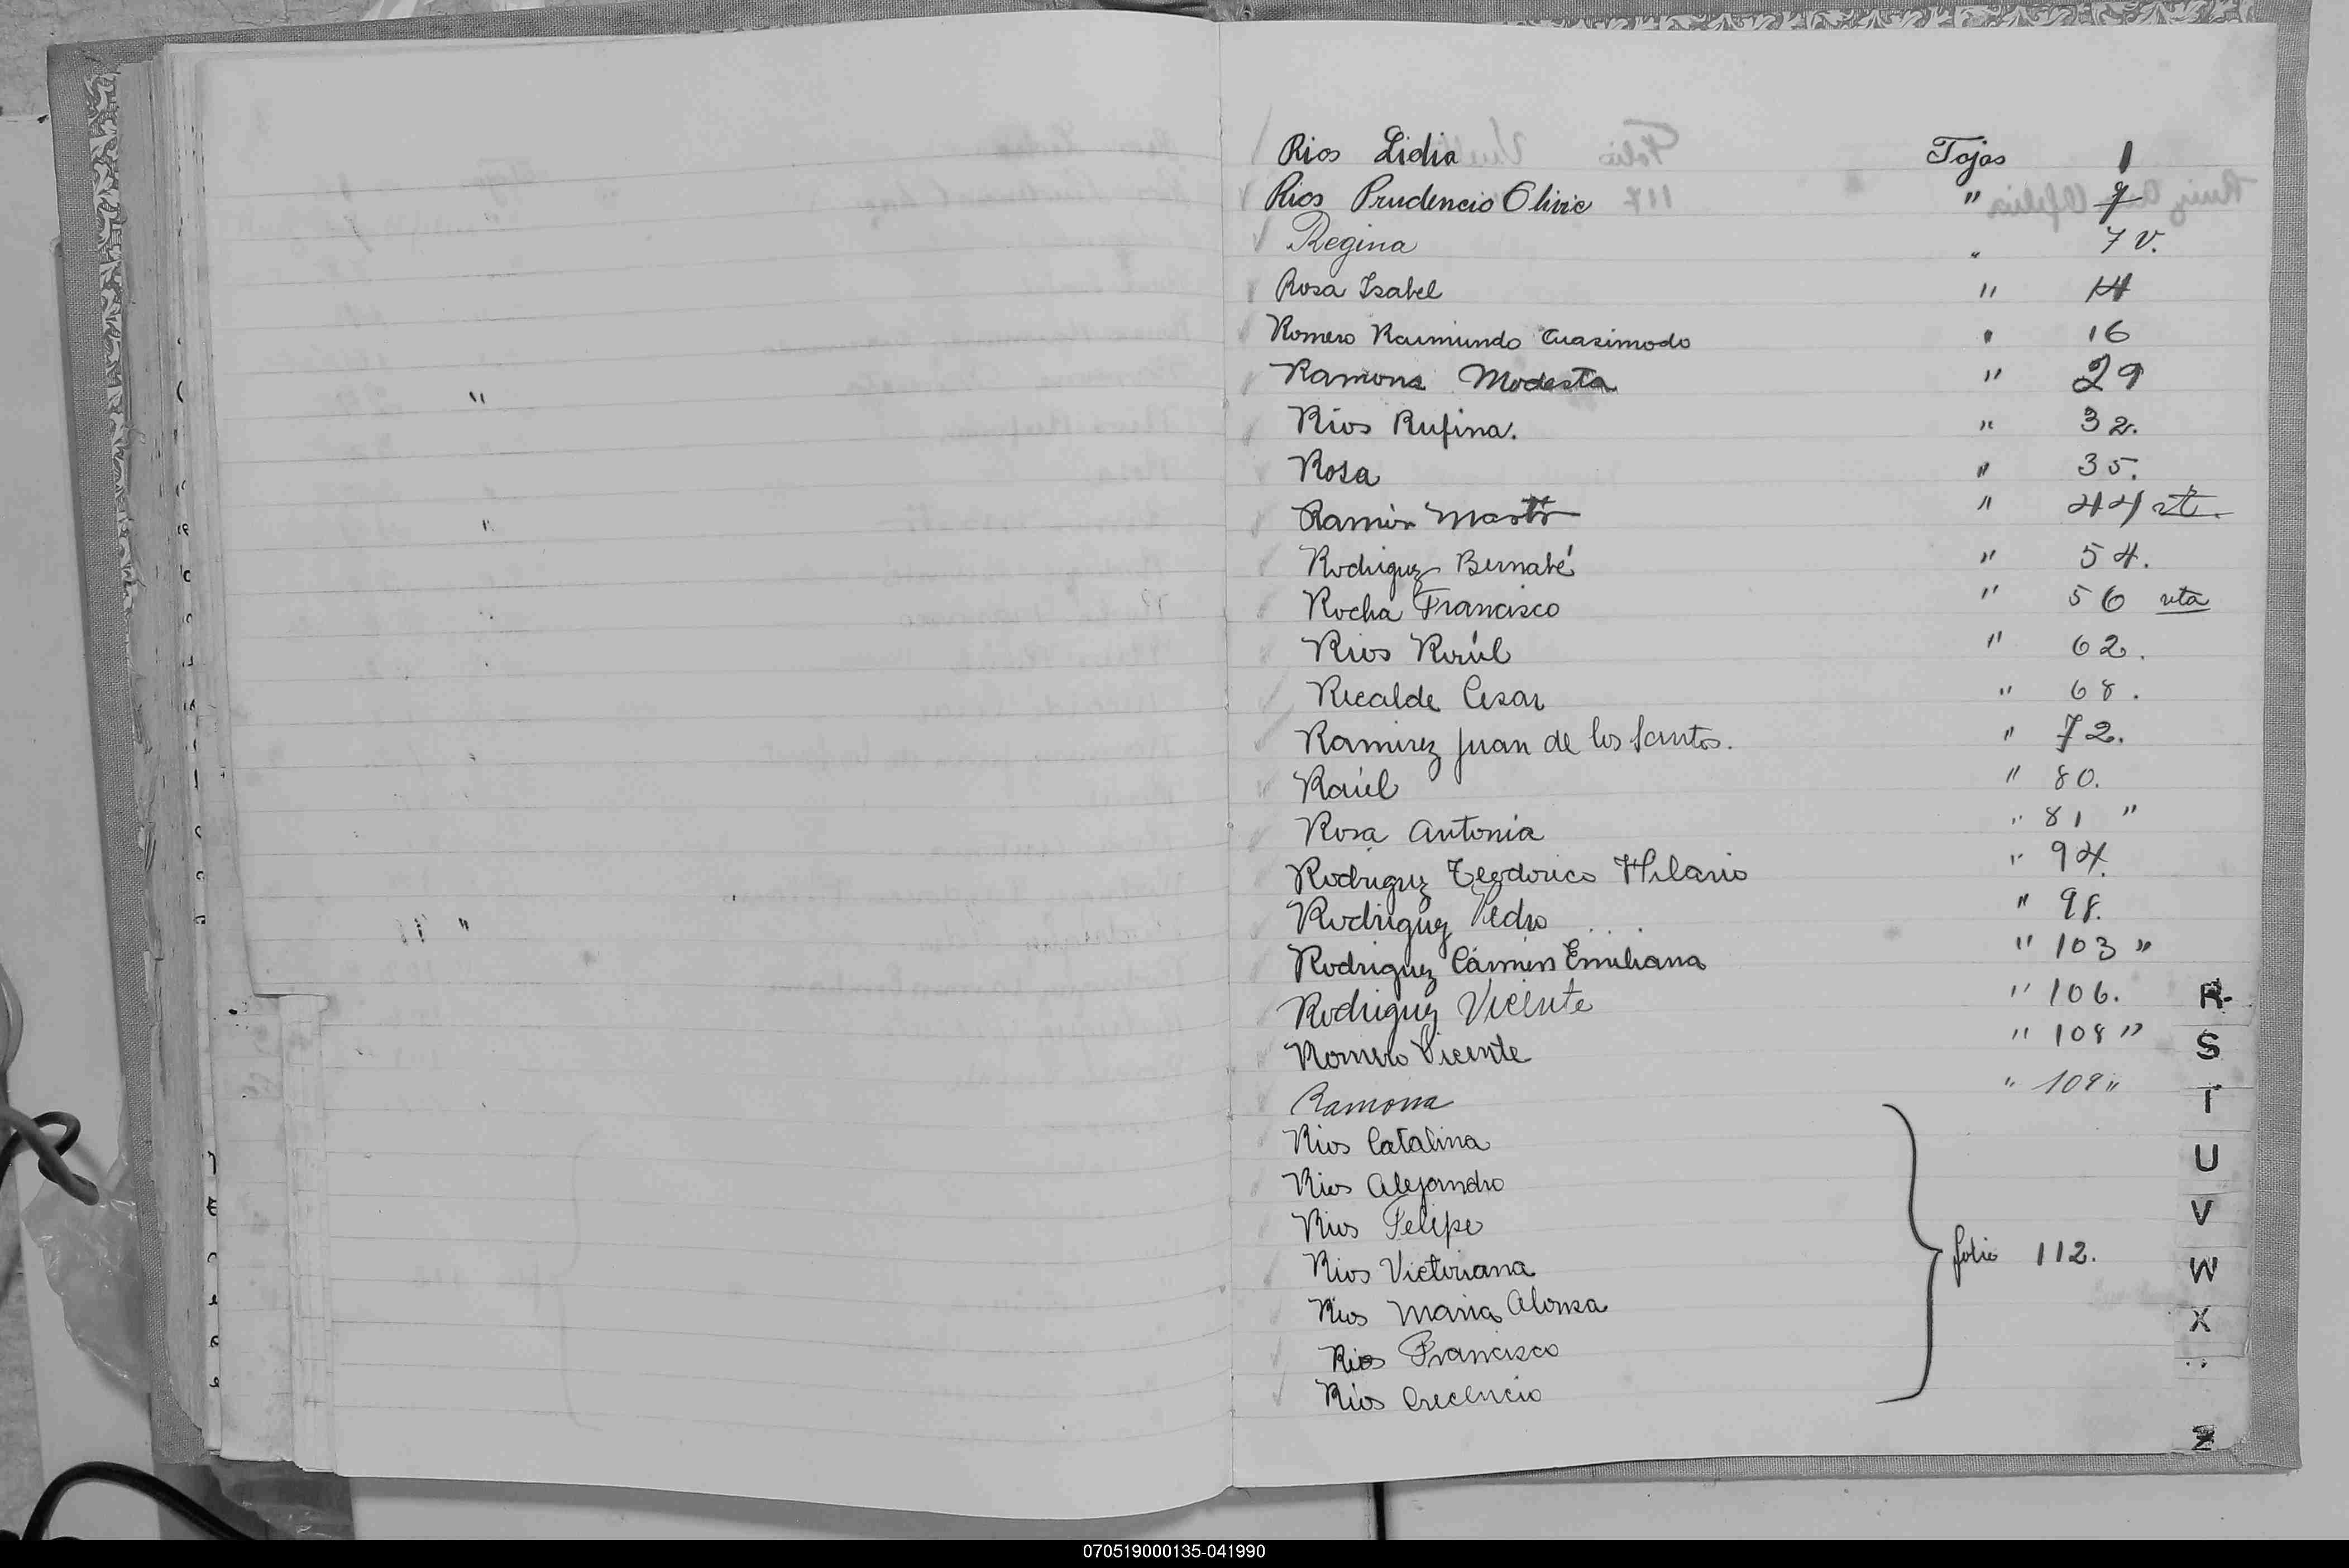 Rios Lidia Fojas 1
Rios Prudencio Olivio " 7
Regina " 7 v.
Rosa Isabel " 14
Romero Raimundo Cuasimodo " 16
Ramona Modesta " 29
Rios Rufina. " 32.
Rosa " 35.
Ramón " 44 vt.
Rodriguez Bernabé " 54.
Rocha Francisco " 56 vta
Rios Raúl " 62.
Recalde Cesar " 68.
Ramirez Juan de los Santos. " 72.
Raúl " 80.
Rosa Antonia " 81 "
Rodriguez Teodorico Hilario " 94.
Rodriguez Pedro " 98.
Rodriguez Cármen Emiliana " 103 "
Rodriguez Vicente " 106.
Romero Vicente " 108 "
Ramona " 109 "
Rios Catalina
Rios Alejandro
Rios Felipe
Rios Victoriana folio 112.
Rios Maria Alonsa
Rios Francisco
Rios Crecencio
R
S
T
U
V
W
X
Z
070519000135-041990